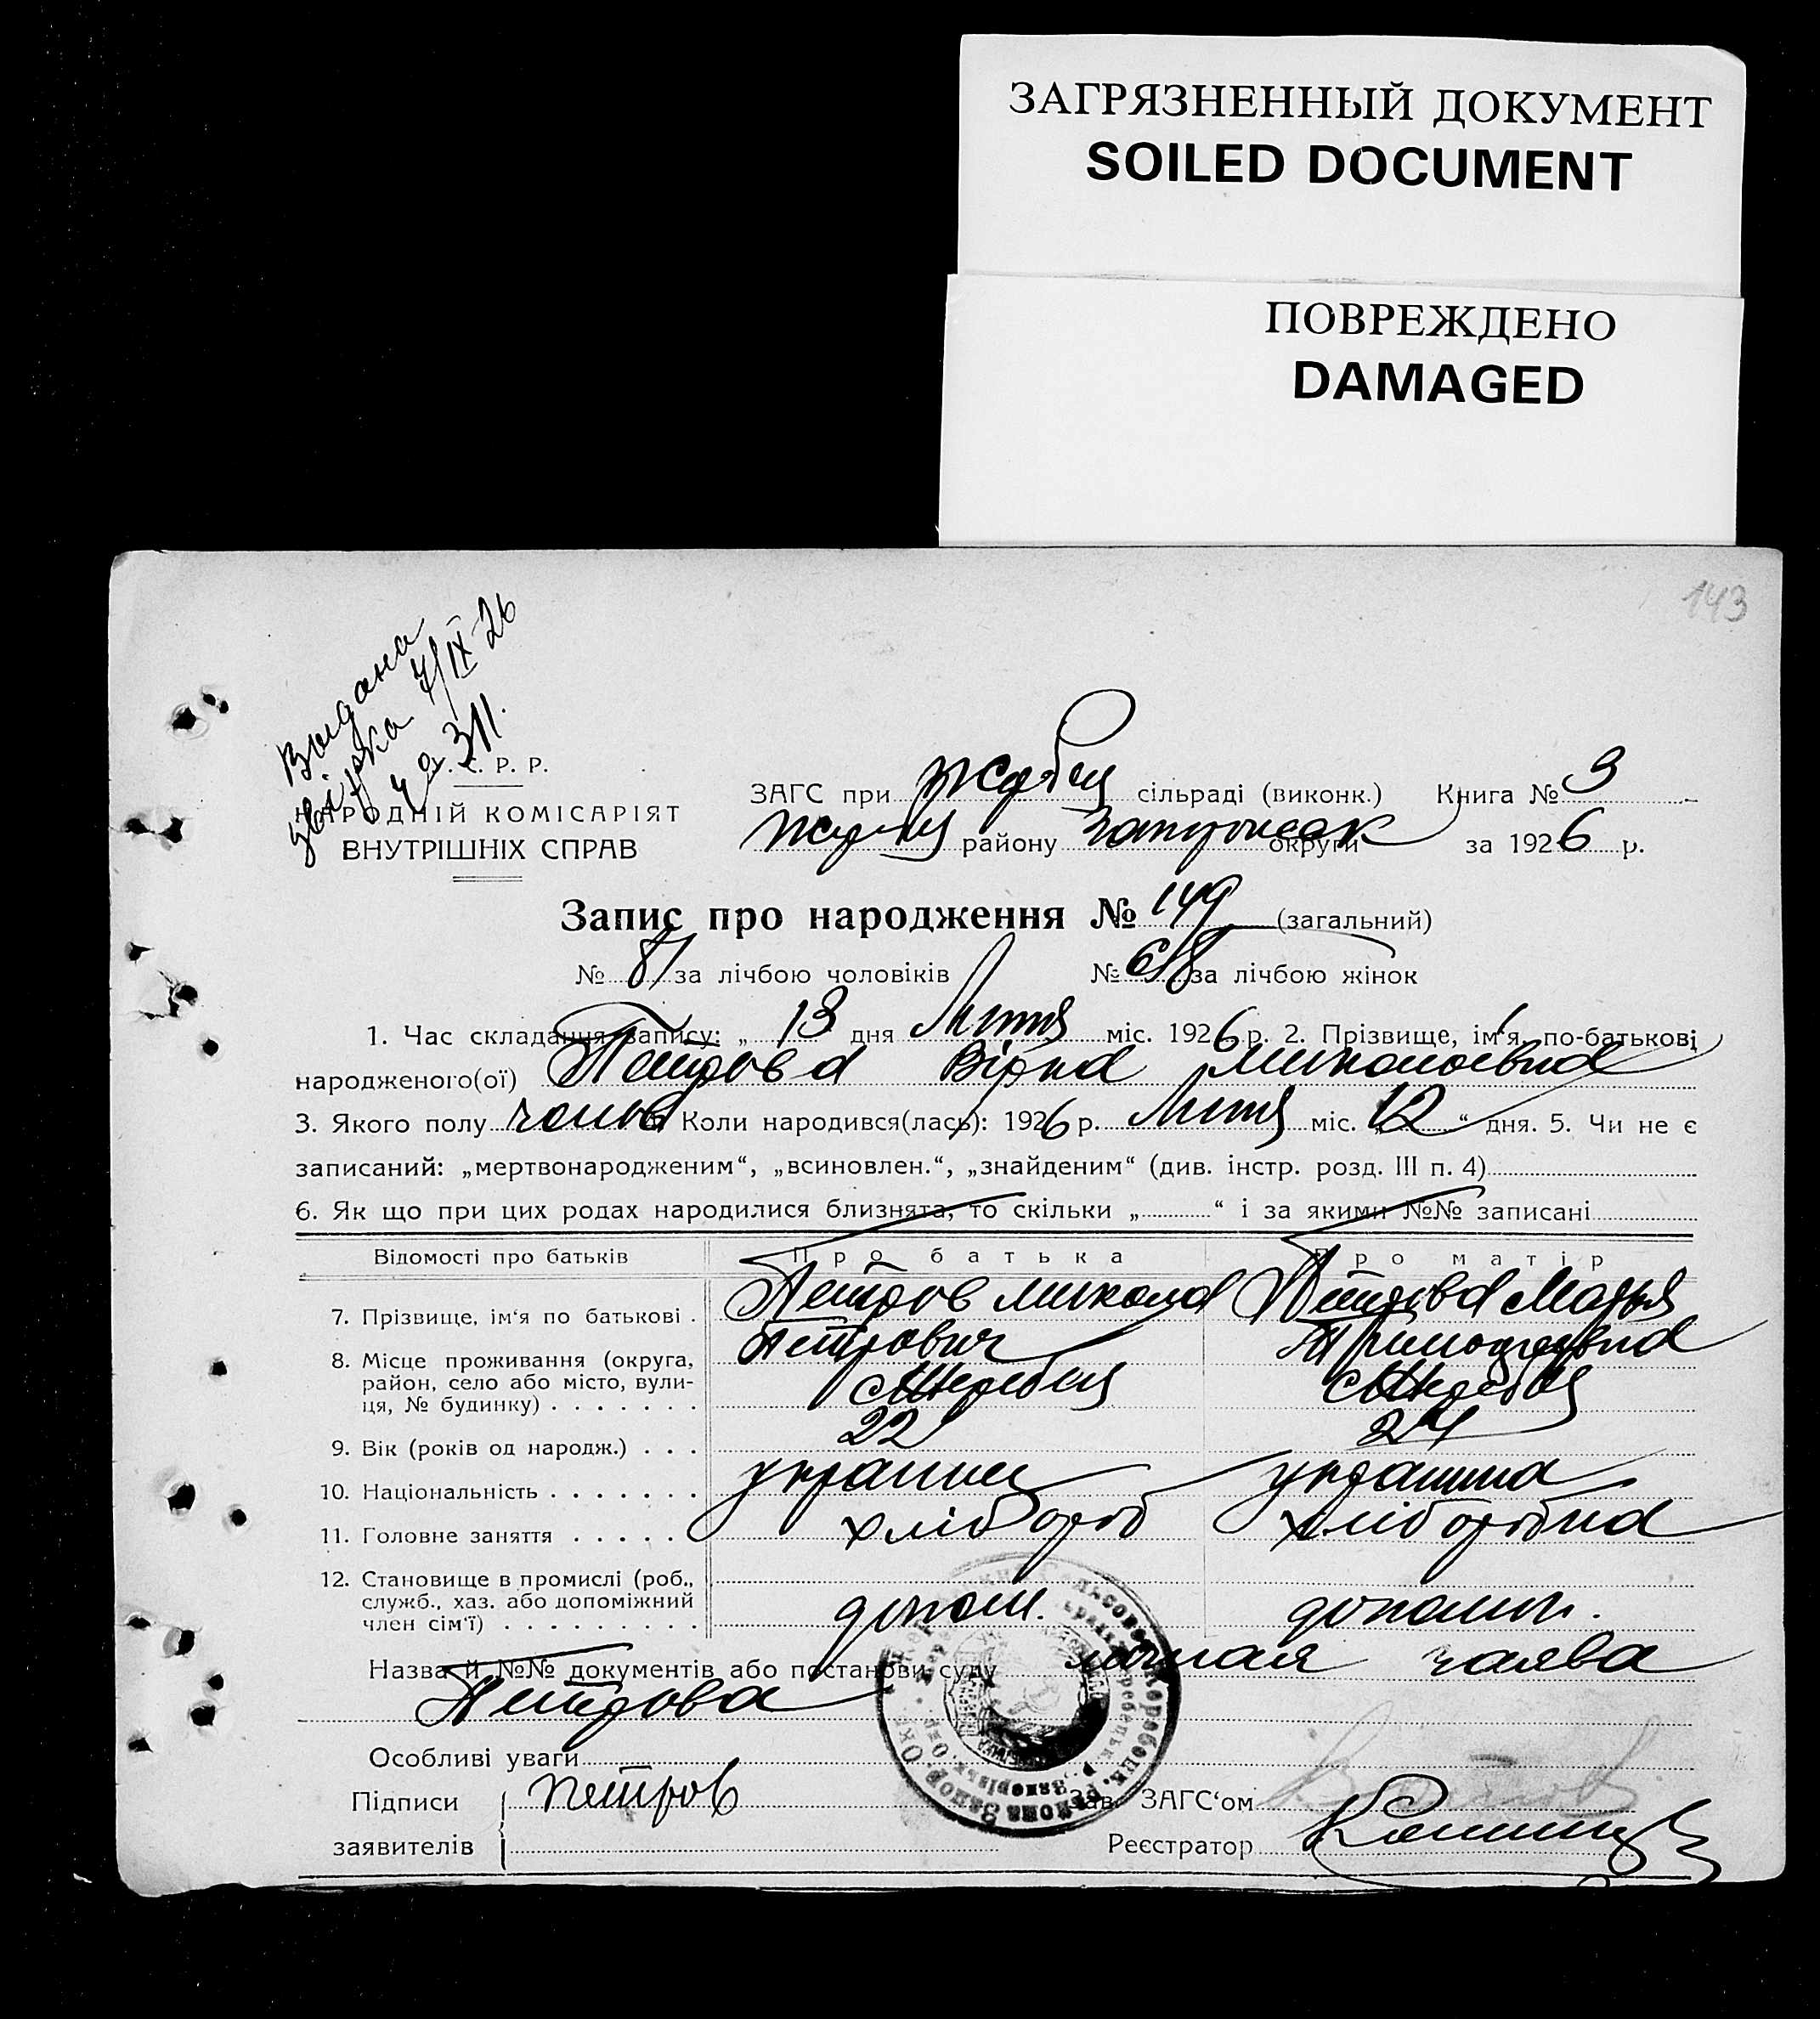 ЗАГРЯЗНЕННЫЙ ДОКУМЕНТ
SOILED DOCUMENT
ПОВРЕЖДЕНО
DAMAGED
143
Выдана
4/IX-26
за 311.
С. Р. Р.
НАРОДНІЙ КОМІСАРІЯТ
ВНУТРІШНІХ СПРАВ
ЗАГС при Жербец сільраді (виконк.) Книга № 3
району Запоріжск округи за 1926 р.
Запис про народження № 149 (загальний)
№ 81 за лічбою чоловіків № 68 за лічбою жінок
1. Час складання запису: „ 13 дня Липня міс. 1926 р. 2. Прізвище, ім'я, по-батькові
народженого(ої) Петрова Вірка Миколаевна
3. Якого полу Коли народився(лась): 1926 р. Липня міс. „12“ дня. 5. Чи не є
записаний: „мертвонародженим“, „всиновлен.“, „знайденим“ (див. інстр. розд. III п. 4)
6. Як що при цих родах народилися близнята, то скільки „ “ і за якими №№ записані
Відомості про батьків Про батька Про матір
7. Прізвище, ім'я по батькові . Петров Микола Петрович Петрова Марья
8. Місце проживання (округа, район, село або місто, вулиця, № будинку) . . . . . . . с Жеребец с Жеребец
9. Вік (років од народж.) . . . 22 24
10. Національність . . . . . . . украинец украинка
11. Головне заняття . . . . . хлібороб хліборобка
12. Становище в промислі (роб., служб., хаз. або допоміжний член сім'ї) . . . . . . . . . допом. допоміж.
Назва й №№ документів або постанови суду личная заява
Петрова
Особливі уваги
Підписи заявителів Петров
Зав. ЗАГС'ом
Реєстратор